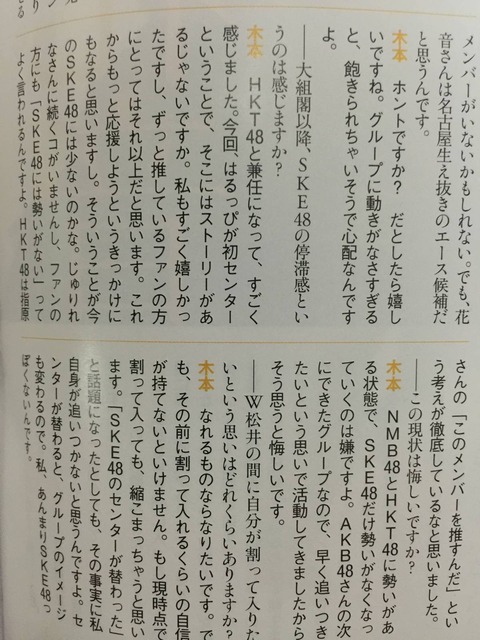 メンバーがいないかもしれない。でも、花
音さんは名古屋生え抜きのエース候補だ
と思うんです。
木本　ホントですか？　だとしたら嬉し
いですね。グループに動きがなさすぎる
と、飽きられちゃいそうで心配なんです
よ。
――大組閣以降、SKE48の停滞感とい
うのは感じますか？
木本　HKT48と兼任になって、すごく
感じました。今回、はるっぴが初センター
ということで、そこにはストーリーがあ
るじゃないですか。私もすごく嬉しかっ
たですし、ずっと推しているファンの方
にとってはそれ以上だと思います。これ
からもっと応援しようというきっかけに
もなると思いますし。そういうことが今
のSKE48には少ないのかな。じゅりれ
なさんに続くコがいませんし、ファンの
方にも「SKE48には勢いがない」って
よく言われるんですよ。HKT48は指原
さんの「このメンバーを推すんだ」とい
う考えが徹底しているなと思いました。
――この現状は悔しいですか？
木本　NMB48とHKT48に勢いがあ
る状態で、SKE48だけ勢いがなくなっ
ていくのは嫌ですよ。AKB48さんの次
にできたグループなので、早く追いつき
たいという思いで活動してきましたから
そう思うと悔しいです。
――W松井の間に自分が割って入りた
いという思いはどれくらいありますか？
木本　なれるものならなりたいです。で
も、その前に割って入れるくらいの自信
が持てないといけません。もし現時点で
割って入っても、縮こまっちゃうと思い
ます。「SKE48のセンターが替わった」
と話題になったとしても、その事実に私
自身が追いつかないと思うんですよ。セ
ンターが替わると、グループのイメージ
も変わるので。私、あんまりSKE48っ
ぽくないんです。